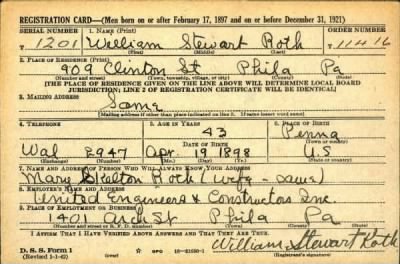 REGISTRATION CARD—(Men born on or after February 17, 1897 and on or before December 31, 1921)
SERIAL NUMBER 1. NAME (Print) ORDER NUMBER
T 1201 William Stewart Roth 11416
(First) (Middle) (Last)
2. PLACE OF RESIDENCE (Print)
909 Clinton St Phila Pa
(Number and street) (Town, township, village, or city) (County) (State)
[THE PLACE OF RESIDENCE GIVEN ON THE LINE ABOVE WILL DETERMINE LOCAL BOARD
JURISDICTION; LINE 2 OF REGISTRATION CERTIFICATE WILL BE IDENTICAL]
3. MAILING ADDRESS
Same
[Mailing address if other than place indicated on line 2. If same insert word same]
4. TELEPHONE 5. AGE IN YEARS 6. PLACE OF BIRTH
43 Penna
DATE OF BIRTH (Town or county)
Wal 2947 Apr. 19 1898 U.S
(Exchange) (Number) (Mo.) (Day) (Yr.) (State or country)
7. NAME AND ADDRESS OF PERSON WHO WILL ALWAYS KNOW YOUR ADDRESS
Mary Roth (wife - same)
8. EMPLOYER'S NAME AND ADDRESS
United Engineers & Constructors Inc.
9. PLACE OF EMPLOYMENT OR BUSINESS
1401 Arch St Phila Pa
(Number and street or R. F. D. number) (Town) (County) (State)
I AFFIRM THAT I HAVE VERIFIED ABOVE ANSWERS AND THAT THEY ARE TRUE.
D. S. S. Form 1
(Revised 1-1-42) (over) GPO 16—21630-1 William Stewart Roth